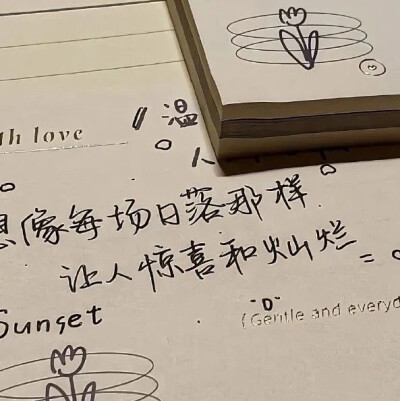 th love
温
人
想像每场日落那样
让人惊喜和灿烂
Sunset
"D"
(Gentle and everyd